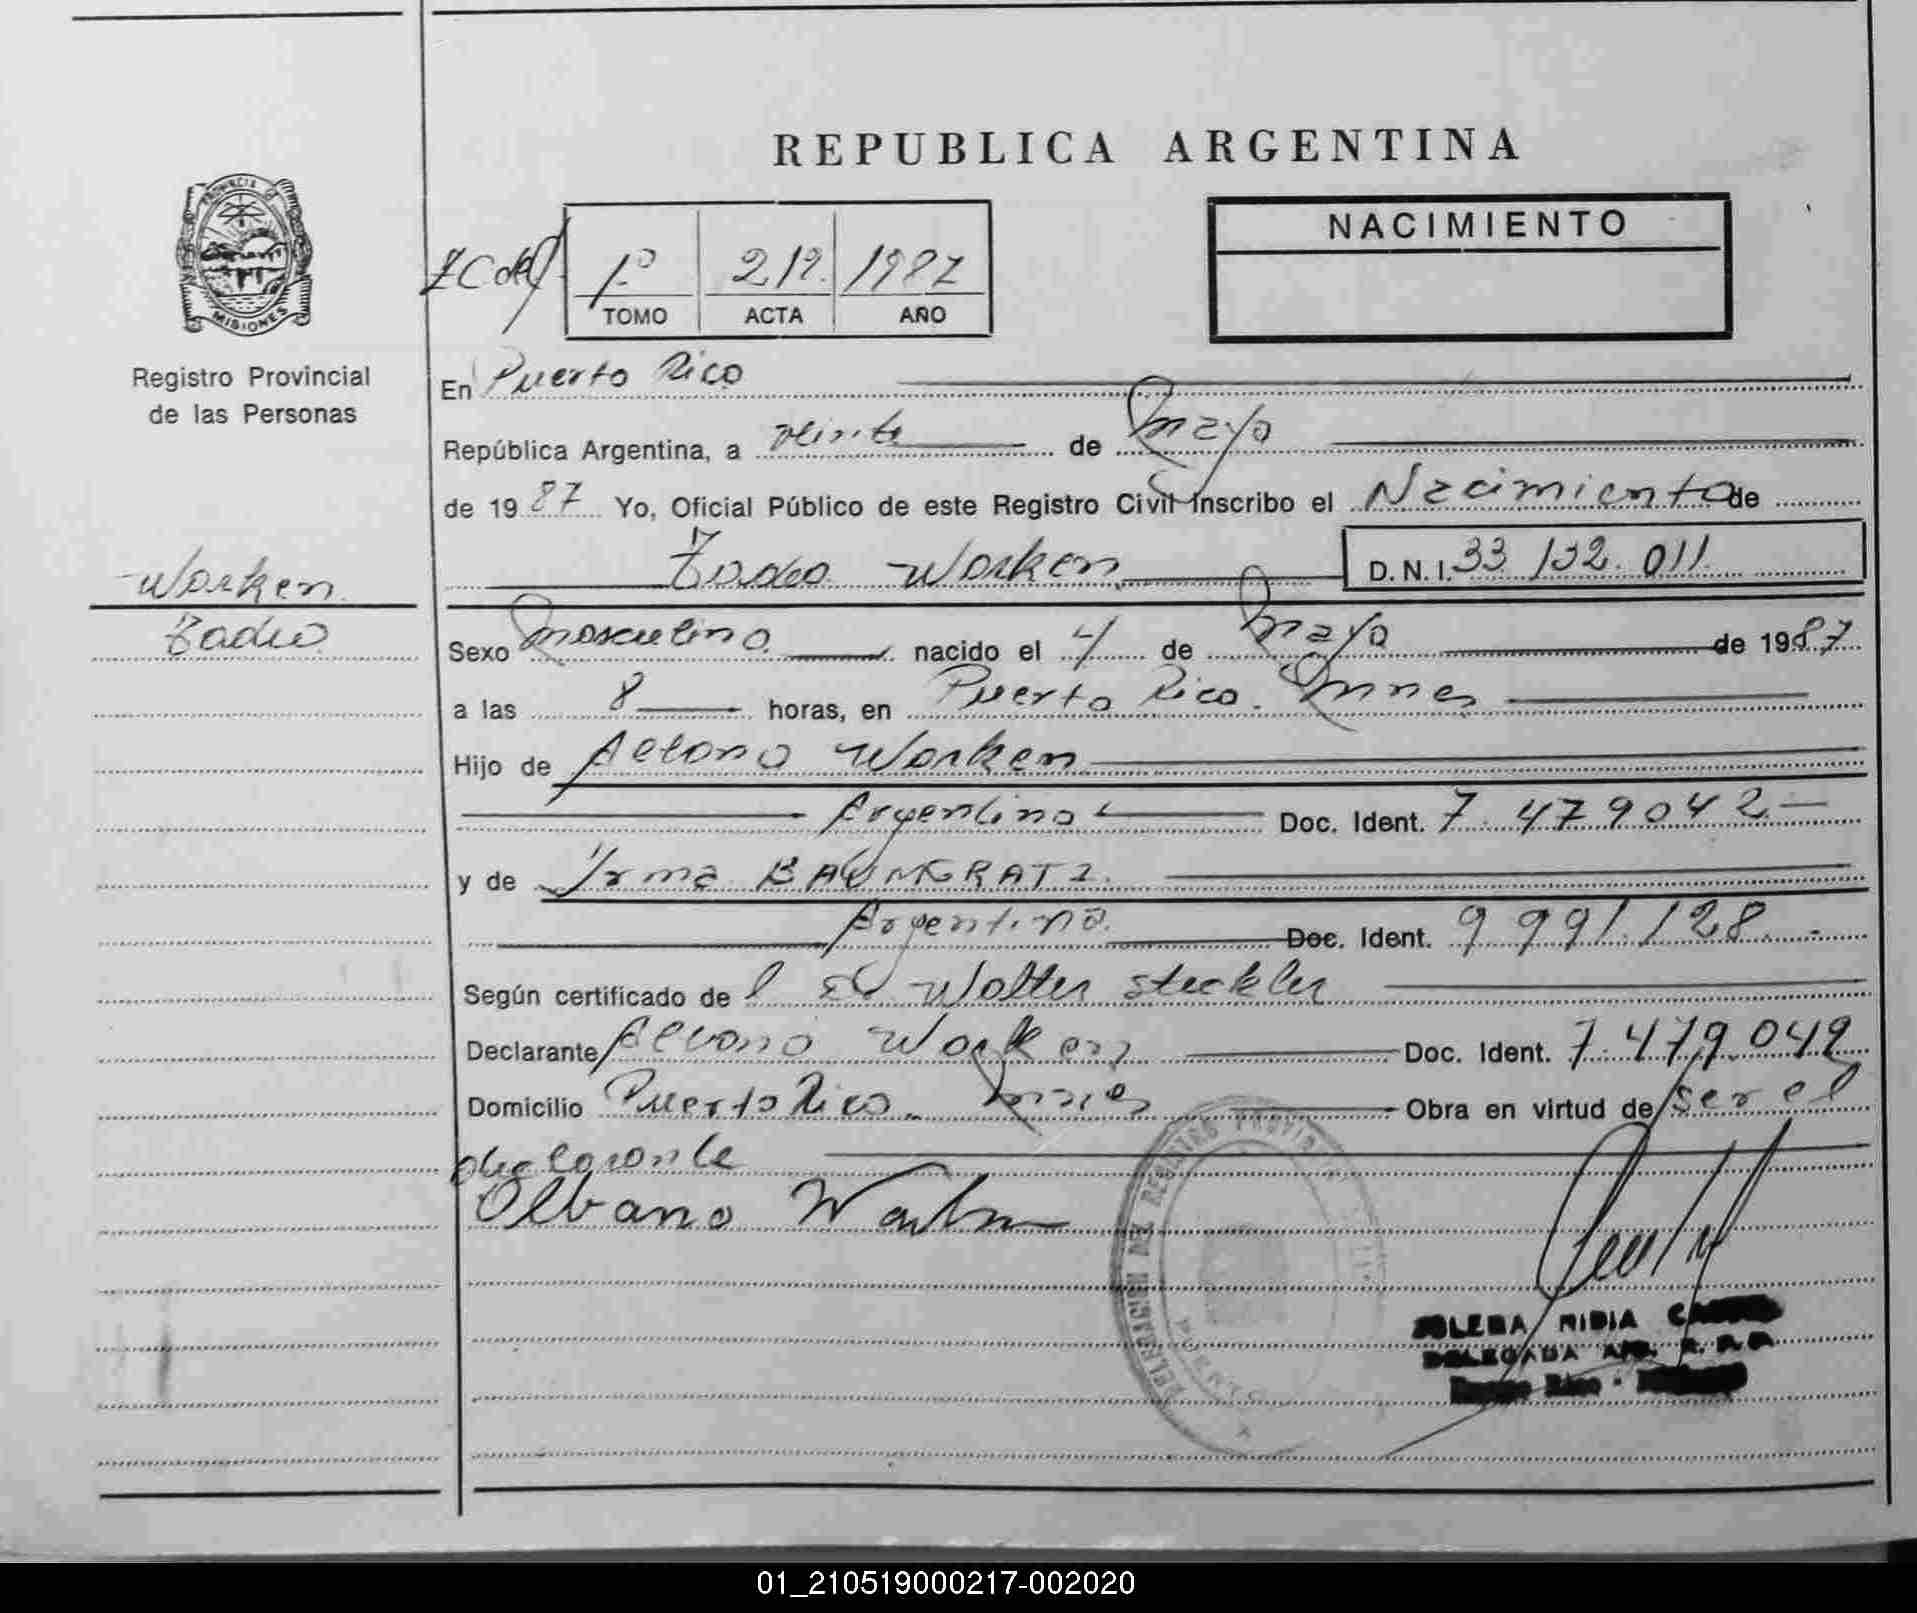 REPUBLICA ARGENTINA
PROVINCIA DE
MISIONES
Registro Provincial
de las Personas
1º 219. 1987
TOMO ACTA AÑO
NACIMIENTO
En Puerto Rico
República Argentina, a veinte de Mayo
de 1987 Yo, Oficial Público de este Registro Civil Inscribo el Nacimiento de
Tadeo Worken D.N.I. 33 132.011
Worken
Tadeo
Sexo Masculino nacido el 4 de Mayo de 1987
a las 8 horas, en Puerto Rico. Mnes
Hijo de Albano Worken
Argentino Doc. Ident. 7.479042
y de Irma BAUMGRATZ.
Argentina. Doc. Ident. 9 991.128
Según certificado de l Walter Steckler
Declarante Albano Worken Doc. Ident. 7.479.042
Domicilio Puerto Rico. Mnes Obra en virtud de ser el
declarante
Albano Worken
DELEGACION DEL REGISTRO PROVINCIAL
PUERTO
NIDIA
DELEGADA
Rico
01_210519000217-002020